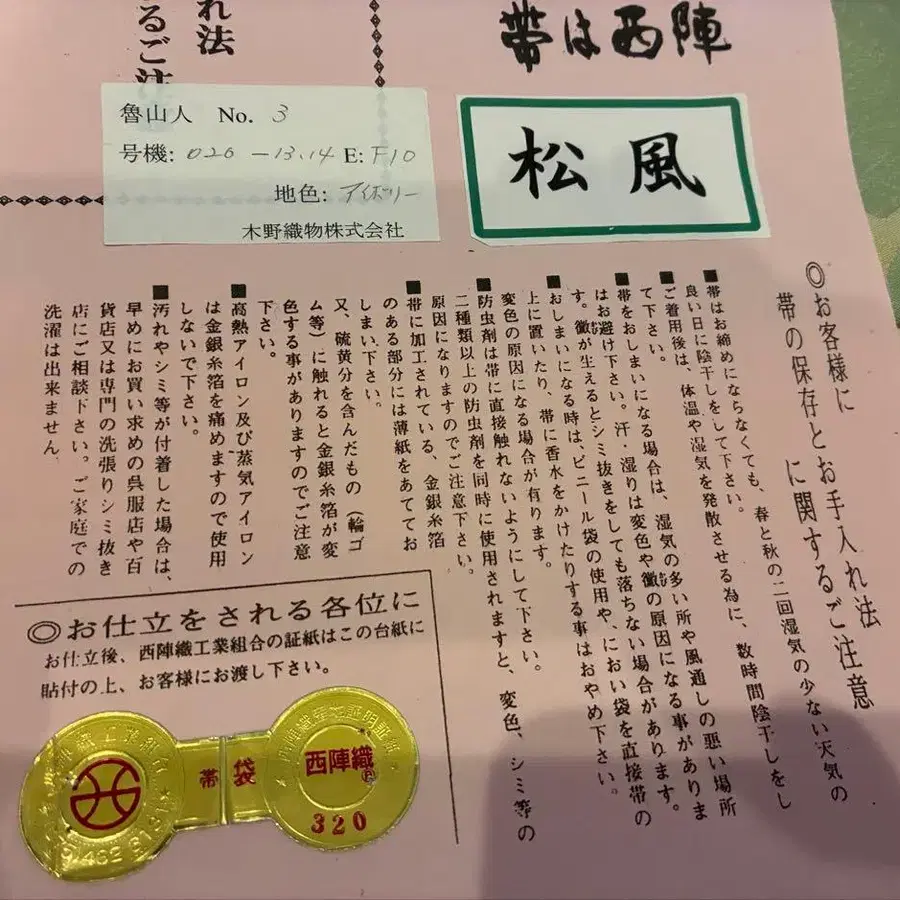 れ法
るご注
帯は西陣
魯山人 No. 3
号機: 020 −13.14 E: F10
地色: アイボリー
木野織物株式会社
松風
◎お客様に
帯の保存とお手入れ法
に関するご注意
■帯はお締めにならなくても、春と秋の二回湿気の少ない天気の
良い日に陰干しをして下さい。
■ご着用後は、体温や湿気を発散させる為に、数時間陰干しをし
て下さい。
■帯をおしまいになる場合は、湿気の多い所や風通しの悪い場所
はお避け下さい。汗・湿りは変色や黴の原因になる事がありま
す。黴が生えるとシミ抜きをしても落ちない場合があります。
■おしまいになる時は、ビニール袋の使用や、におい袋を直接帯の
上に置いたり、帯に香水をかけたりする事はおやめ下さい。
変色の原因になる場合が有ります。
■防虫剤は帯に直接触れないようにして下さい。
二種類以上の防虫剤を同時に使用されますと、変色、シミ等の
原因になりますのでご注意下さい。
■帯に加工されている、金銀糸箔
のある部分には薄紙をあててお
しまい下さい。
又、硫黄分を含んだもの(輪ゴ
ム等)に触れると金銀糸箔が変
色する事がありますのでご注意
下さい。
■高熱アイロン及び蒸気アイロン
は金銀糸箔を痛めますので使用
しないで下さい。
■汚れやシミ等が付着した場合は、
早めにお買い求めの呉服店や百
貨店又は専門の洗張りシミ抜き
店にご相談下さい。ご家庭での
洗濯は出来ません。
◎お仕立をされる各位に
お仕立後、西陣織工業組合の証紙はこの台紙に
貼付の上、お客様にお渡し下さい。
織工業組合
帯 袋
西陣織
320